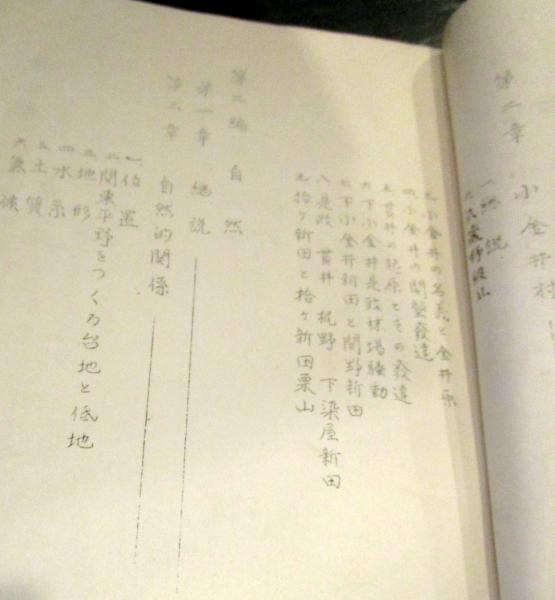 第二章 小金井村
一 総説
三 小金井の名義と金井原
四 小金井の開墾発達
五 貫井の起原とその発達
六 下小金井是政秣場騒動
七 下小金井新田と関野新田
八 是政 貫井 梶野 下染屋新田
九 拾ヶ新田と拾ヶ新田栗山
第二編 自然
第一章 総説
第二章 自然的関係
一 位置
二 関東平野をつくる台地と低地
三 地形
四 水系
五 土質
六 気候